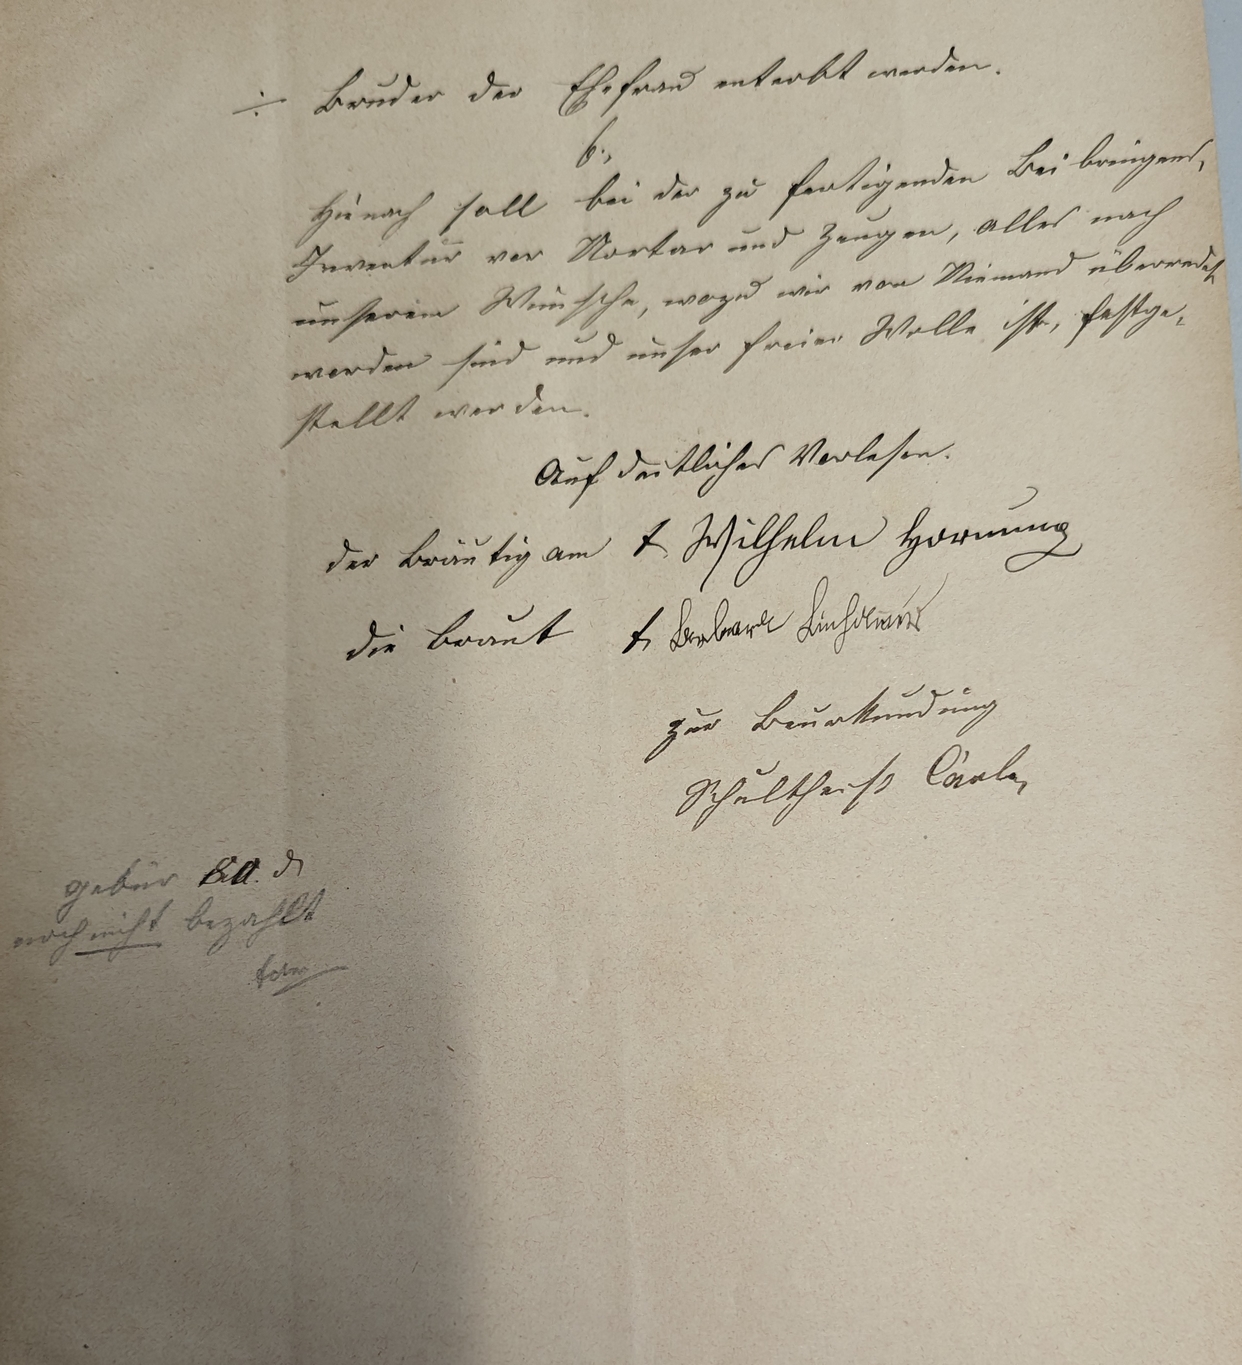 ÷ Bruder der Ehefrau enterbt werden.
6.,
Hienach soll bei der zu fertigenden Beibringens,
Inventur vor Nortar und Zeugen, alles nach
unserem Wunsche, wozu wir von Niemand überredet
worden sind und unser freier Wille ist, festge-
stellt werden.
Auf deutliches Vorlesen.
der Bräutigam t. Wilhelm Hornung
die Braut t.
zur Beurkundung
Schultheiß
gebür
noch nicht bezahlt